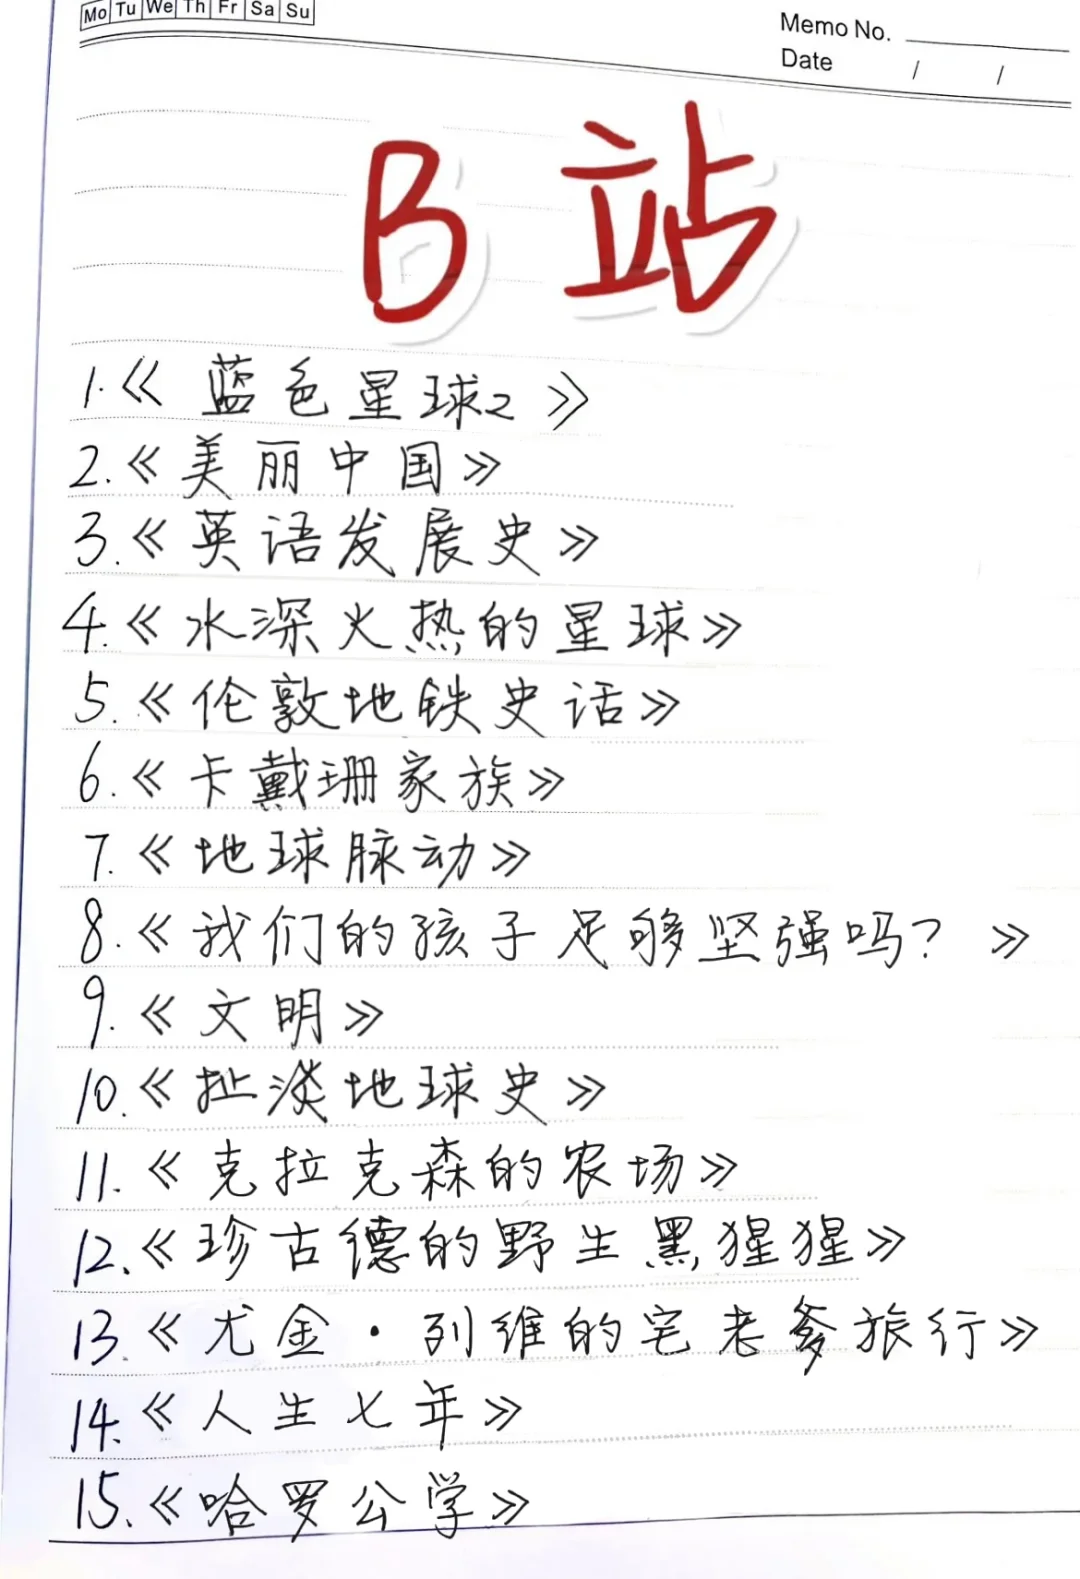 Mo Tu We Th Fr Sa Su
Memo No.
Date / /
B站
1.《蓝色星球2》
2.《美丽中国》
3.《英语发展史》
4.《水深火热的星球》
5.《伦敦地铁史话》
6.《卡戴珊家族》
7.《地球脉动》
8.《我们的孩子足够坚强吗?》
9.《文明》
10.《扯淡地球史》
11.《克拉克森的农场》
12.《珍古德的野生黑猩猩》
13.《尤金·列维的宅老爹旅行》
14.《人生七年》
15.《哈罗公学》